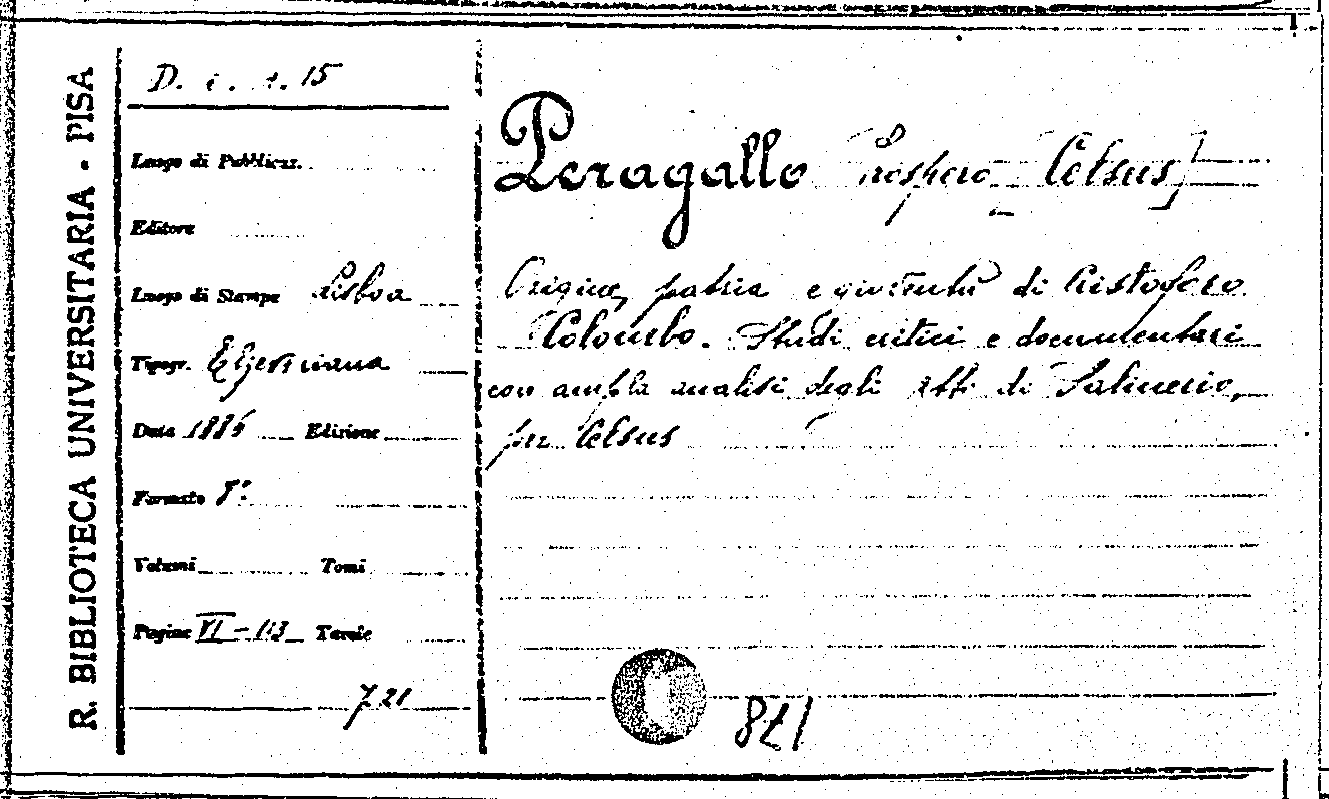 R. BIBLIOTECA UNIVERSITARIA - PISA
D. i. 4. 15
Luogo di Pubblicaz.
Editore
Luogo di Stampa Lisboa
Tipogr. Elzeviriana
Data 1886 Edizione
Formato 8°
Volumi Tomi
Pagine VI - 113 Tavole
721
Peragallo Prospero [Celsus]
Origine, patria e gioventù di Cristoforo
Colombo. Studi critici e documentari
con ampla analisi degli atti di Salinerio,
per Celsus
871